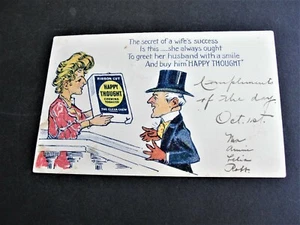 The secret of a wife's success
Is this ..... she always ought
To greet her husband with a smile
And buy him "HAPPY THOUGHT"
RIBBON CUT
HAPPY
THOUGHT
Compliments
of the day
Oct. 1st.